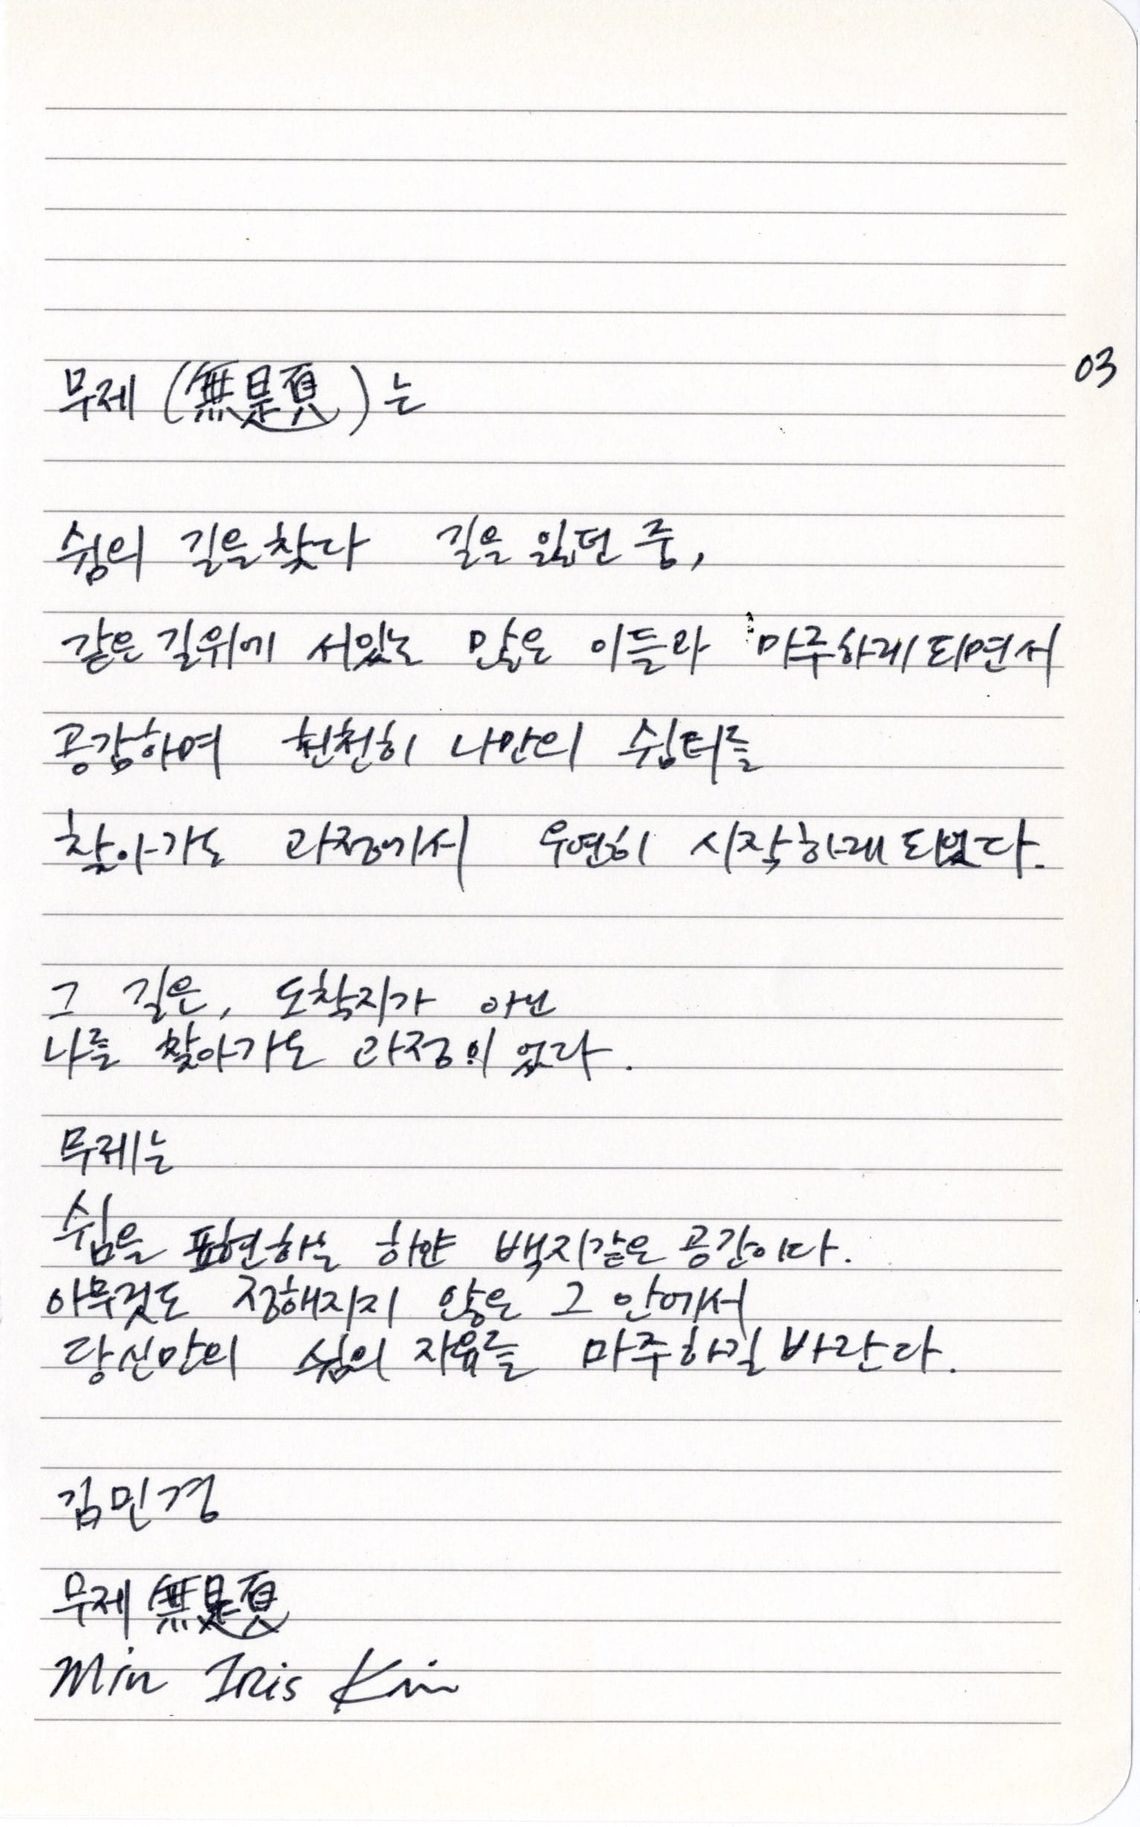 03
무제 (無題)는
쉼의 길을 찾다 길을 잃던 중,
같은 길위에 서있는 많은 이들과 마주하게 되면서
공감하며 천천히 나만의 쉼터를
찾아가는 과정에서 우연히 시작하게 되었다.
그 길은, 도착지가 아닌
나를 찾아가는 과정이 었다.
무제는
쉼을 표현하는 하얀 백지같은 공간이다.
아무것도 정해지지 않은 그 안에서
당신만의 쉼의 자유를 마주하길 바란다.
김민경
무제 無題
Min Iris Kim